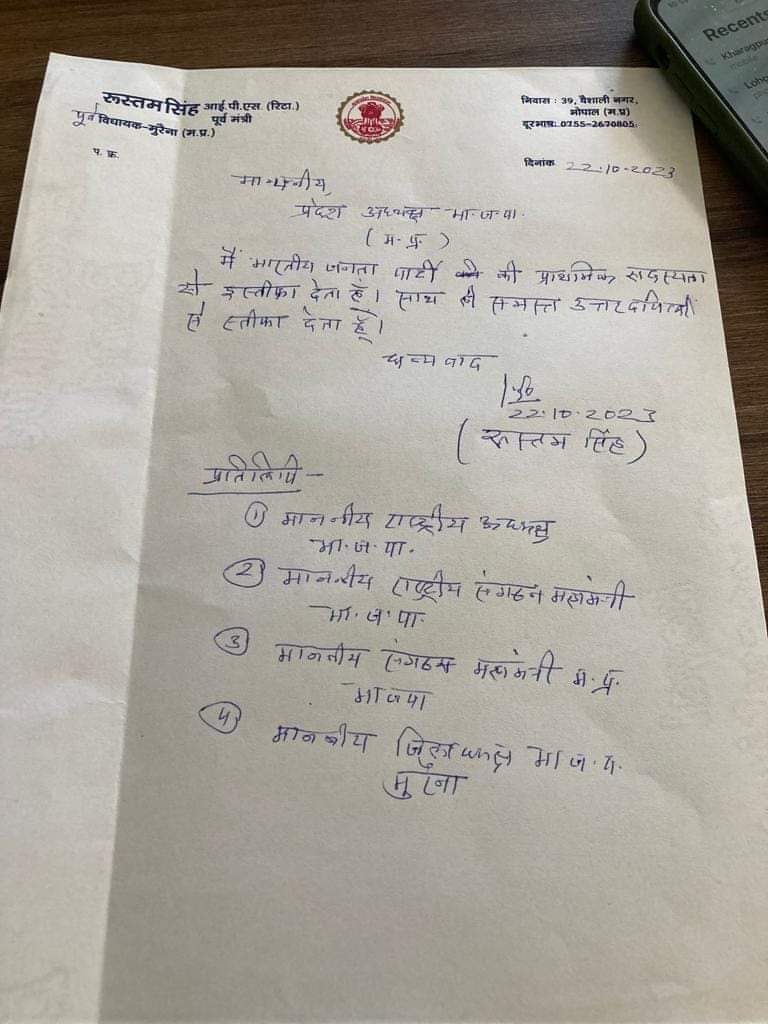 रूस्तम सिंह आई.पी.एस. (रिटा.)
पूर्व मंत्री
पूर्व विधायक-मुरैना (म.प्र.)
प. क्र.
निवास : 39, वैशाली नगर,
भोपाल (म.प्र)
दूरभाष: 0755-2670805
दिनांक 22.10.2023
माननीय,
प्रदेश अध्यक्ष भा.ज.पा.
(म.प्र.)
मैं भारतीय जनता पार्टी की प्राथमिक सदस्यता
से इस्तीफा देता हूँ। साथ ही समस्त उत्तरदायित्वों
से स्तीफा देता हूँ।
धन्यवाद
22.10.2023
(रूस्तम सिंह)
प्रतिलिपि -
1) माननीय राष्ट्रीय अध्यक्ष
भा.ज.पा.
2) माननीय राष्ट्रीय संगठन महामंत्री
भा.ज.पा.
3) माननीय संगठन महामंत्री म.प्र.
भाजपा
4) माननीय जिलाध्यक्ष भा.ज.पा.
मुरैना
Recents
Kharagpur
mobile